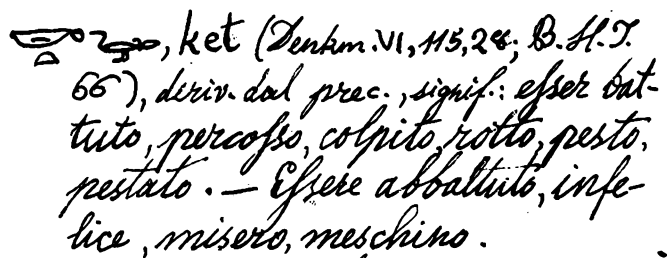 , ket (Denkm. VI, 115, 28; B. H. T.
66), deriv. dal prec., signif.: eſser bat-
tuto, percoſso, colpito, rotto, pesto,
pestato. — Eſsere abbattuto, infe-
lice, misero, meschino.